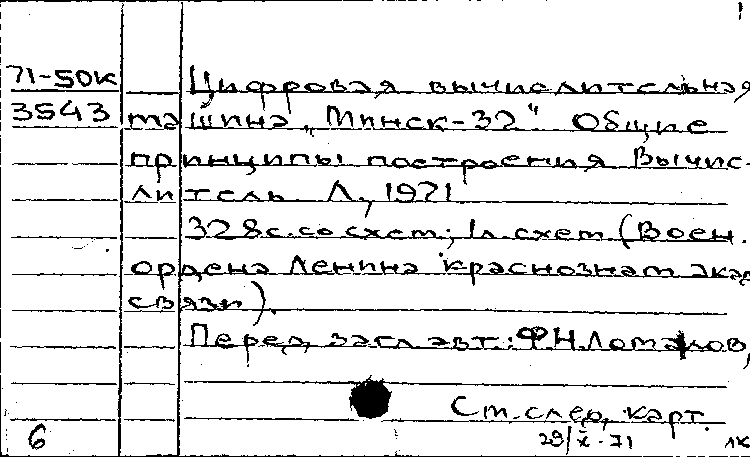 1
71-50к Цифровая вычислительная
3543 машина „Минск-32“. Общие
принципы построения Вычис-
литель Л., 1971
328с. со схем; 1л. схем (Воен.
ордена Ленина краснознам акад
связи).
Перед загл авт.: Ф.Н.
См. след. карт.
6 29/X-71 лк